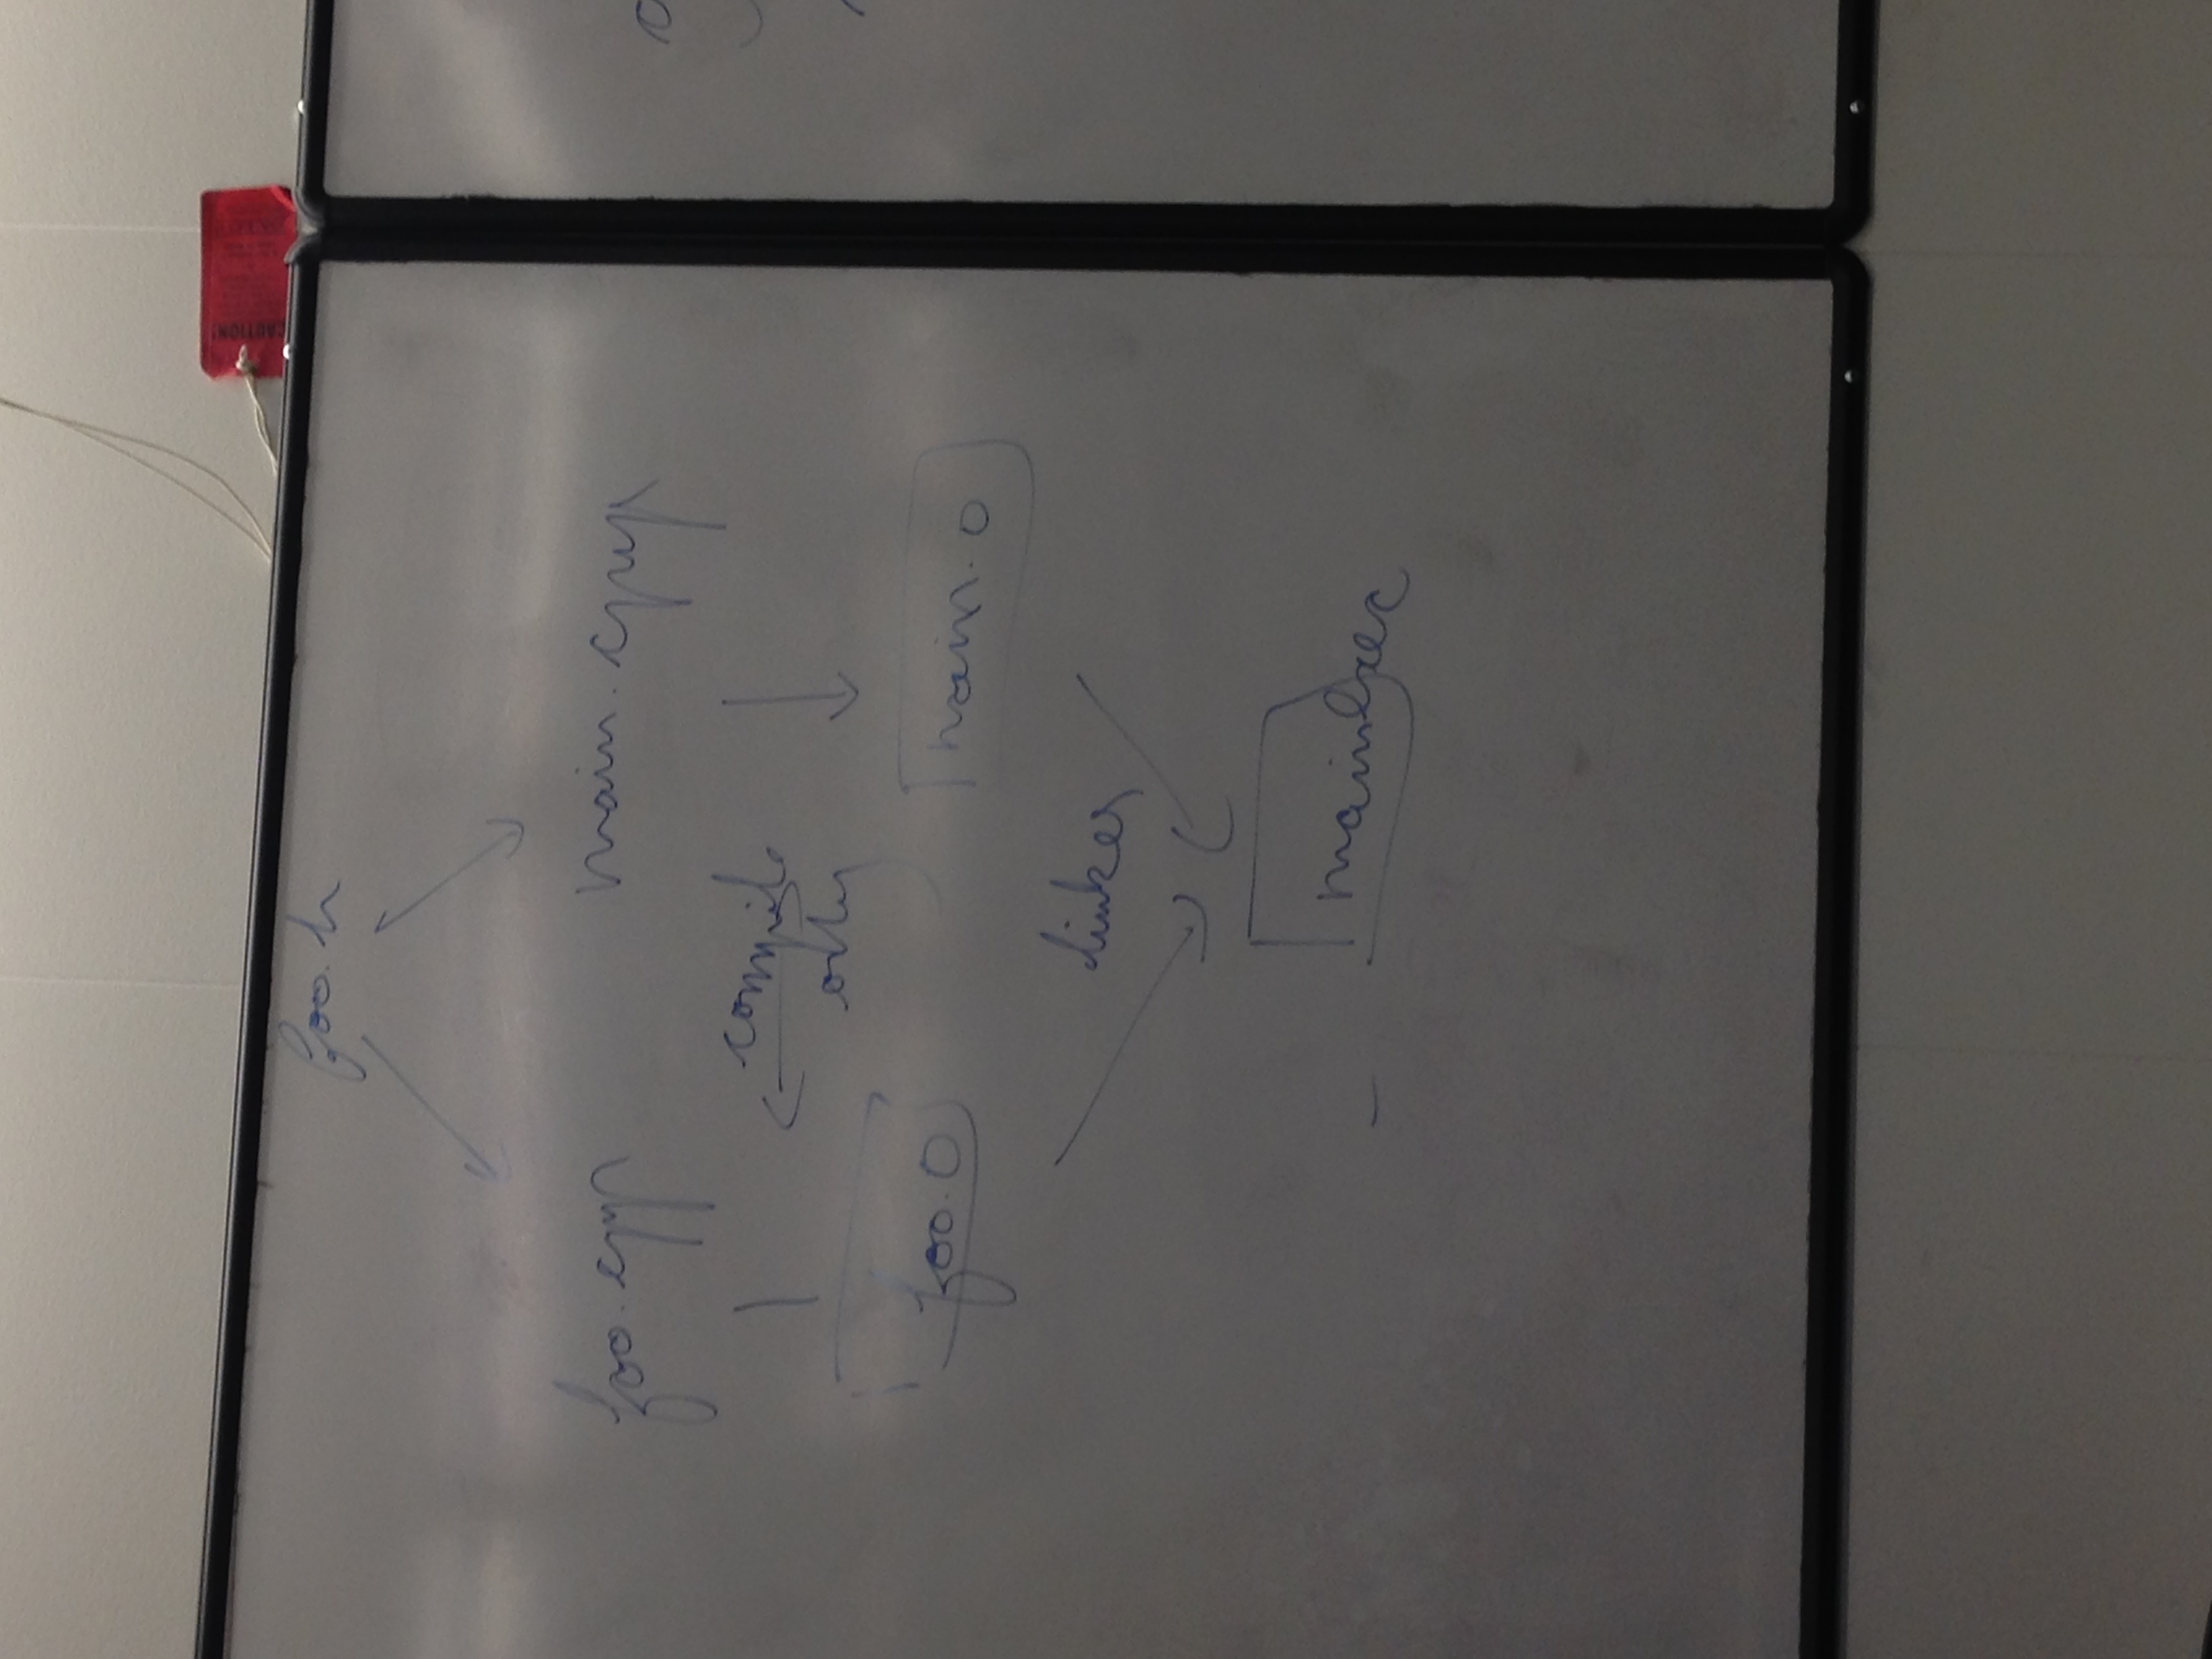 CAUTION!
foo.h
foo.cpp
main.cpp
compile
only
foo.o
main.o
linker
mainExec